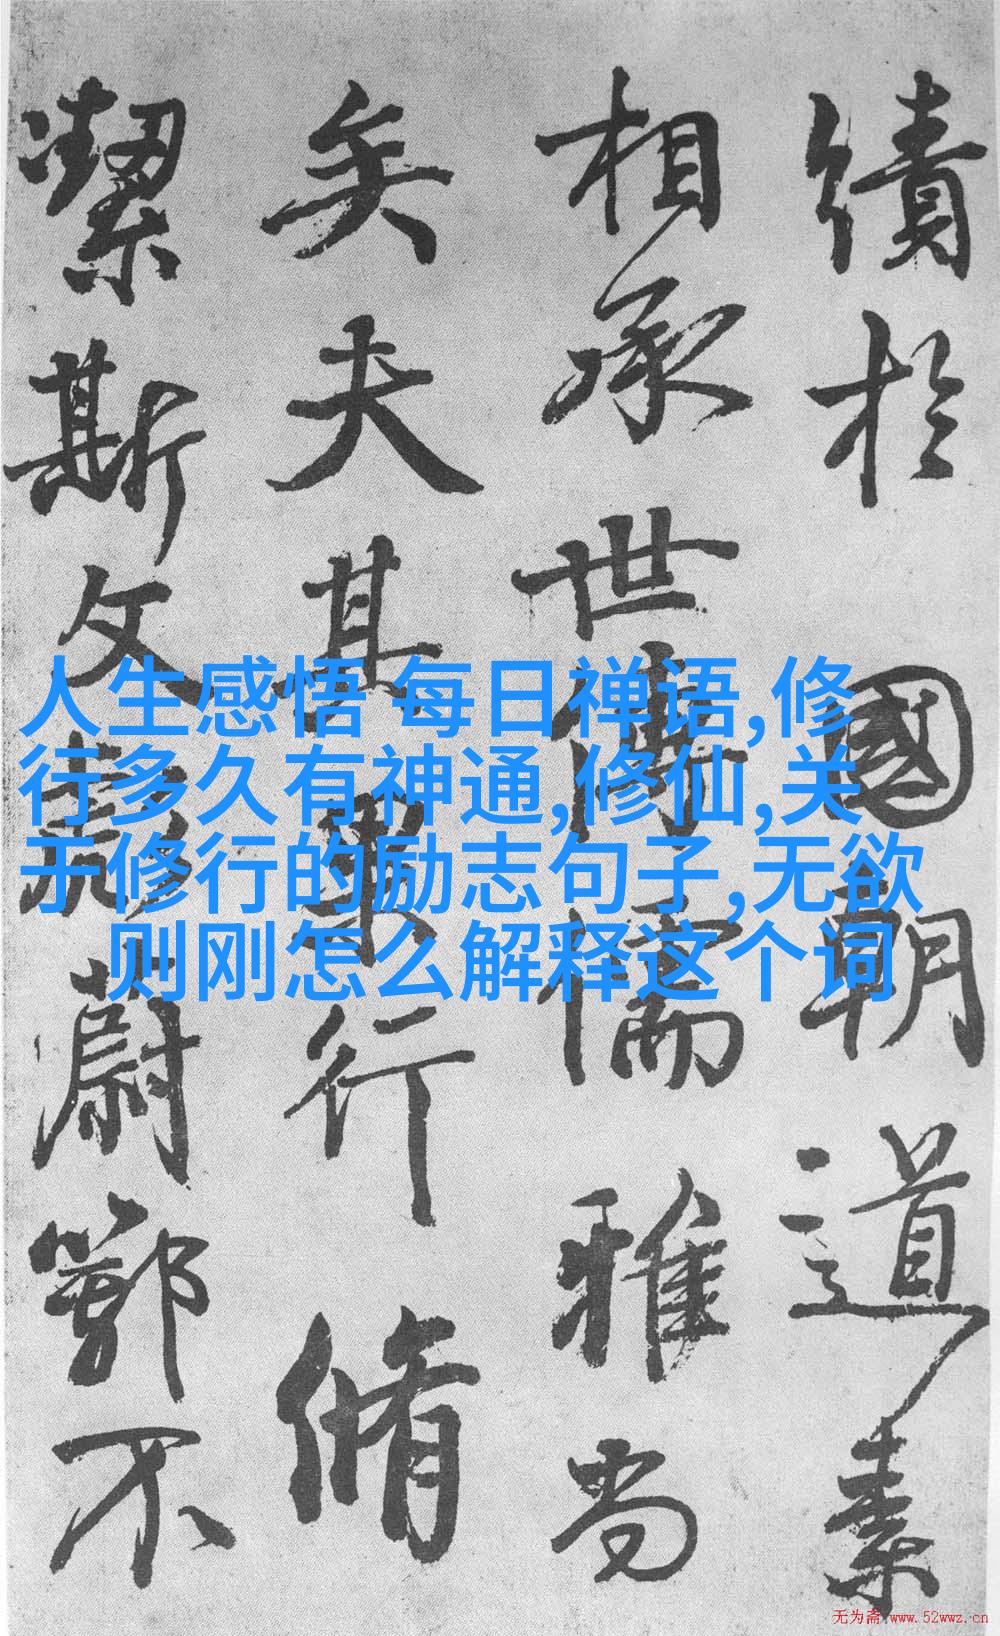 績於國朝道素
相承世傳儒雅尚
矣夫其果行脩
潔斯文彪蔚鄂不
人生感悟 每日禅语,修
行多久有神通,修仙,关
于修行的励志句子,无欲
则刚怎么解释这个词
无为斋 www.52wwz.cn